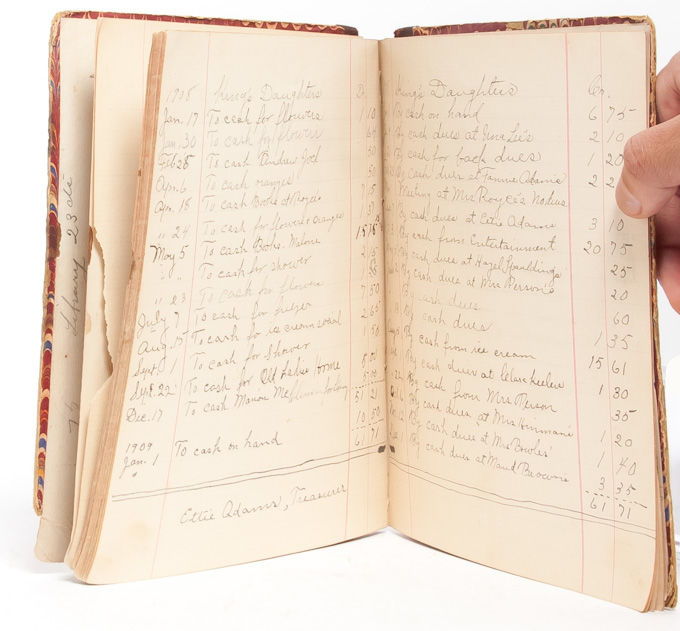 1908 King's Daughters Dr.
Jan. 17 To cash for flowers 1 10
Jan. 30 To cash for flowers
Feb 28 To cash 50
Apr. 6 To cash oranges 50
Apr. 18 To cash Books at Royce's
" 24 To cash for flowers & oranges
May 5 To cash Books. Malone 15 15
" " To cash for shower
" 23 To cash for flowers
July 7 To cash for 7 50
Aug. 15 To cash for ice cream social 2 65
Sept. 1 To cash for shower 1 50
Sept. 22 To cash for Old Ladies Home 5 00
Dec. 17 To cash Marion 5 00
51 21
1909 10 50
Jan. 1 To cash on hand 61 71
Ettie Adams, Treasurer
King's Daughters Cr.
By cash on hand 6 75
By cash dues at 2 10
By cash for back dues 1 20
By cash dues at Fannie Adams 2
Meeting at Mrs Royce's No dues
By cash dues at Ettie Adams 3 10
By cash from Entertainment 20 75
By cash dues at Hazel Spauldings 25
By cash dues at Mrs Person's 20
By cash dues 60
By cash dues 1 35
By cash from ice cream 15 61
By cash dues at 1 30
By cash from Mrs Person 35
By cash dues at Mrs 1 20
By cash dues at Mrs Bowles' 1 40
By cash dues at Maud Browns 3 35
61 71
Library 23